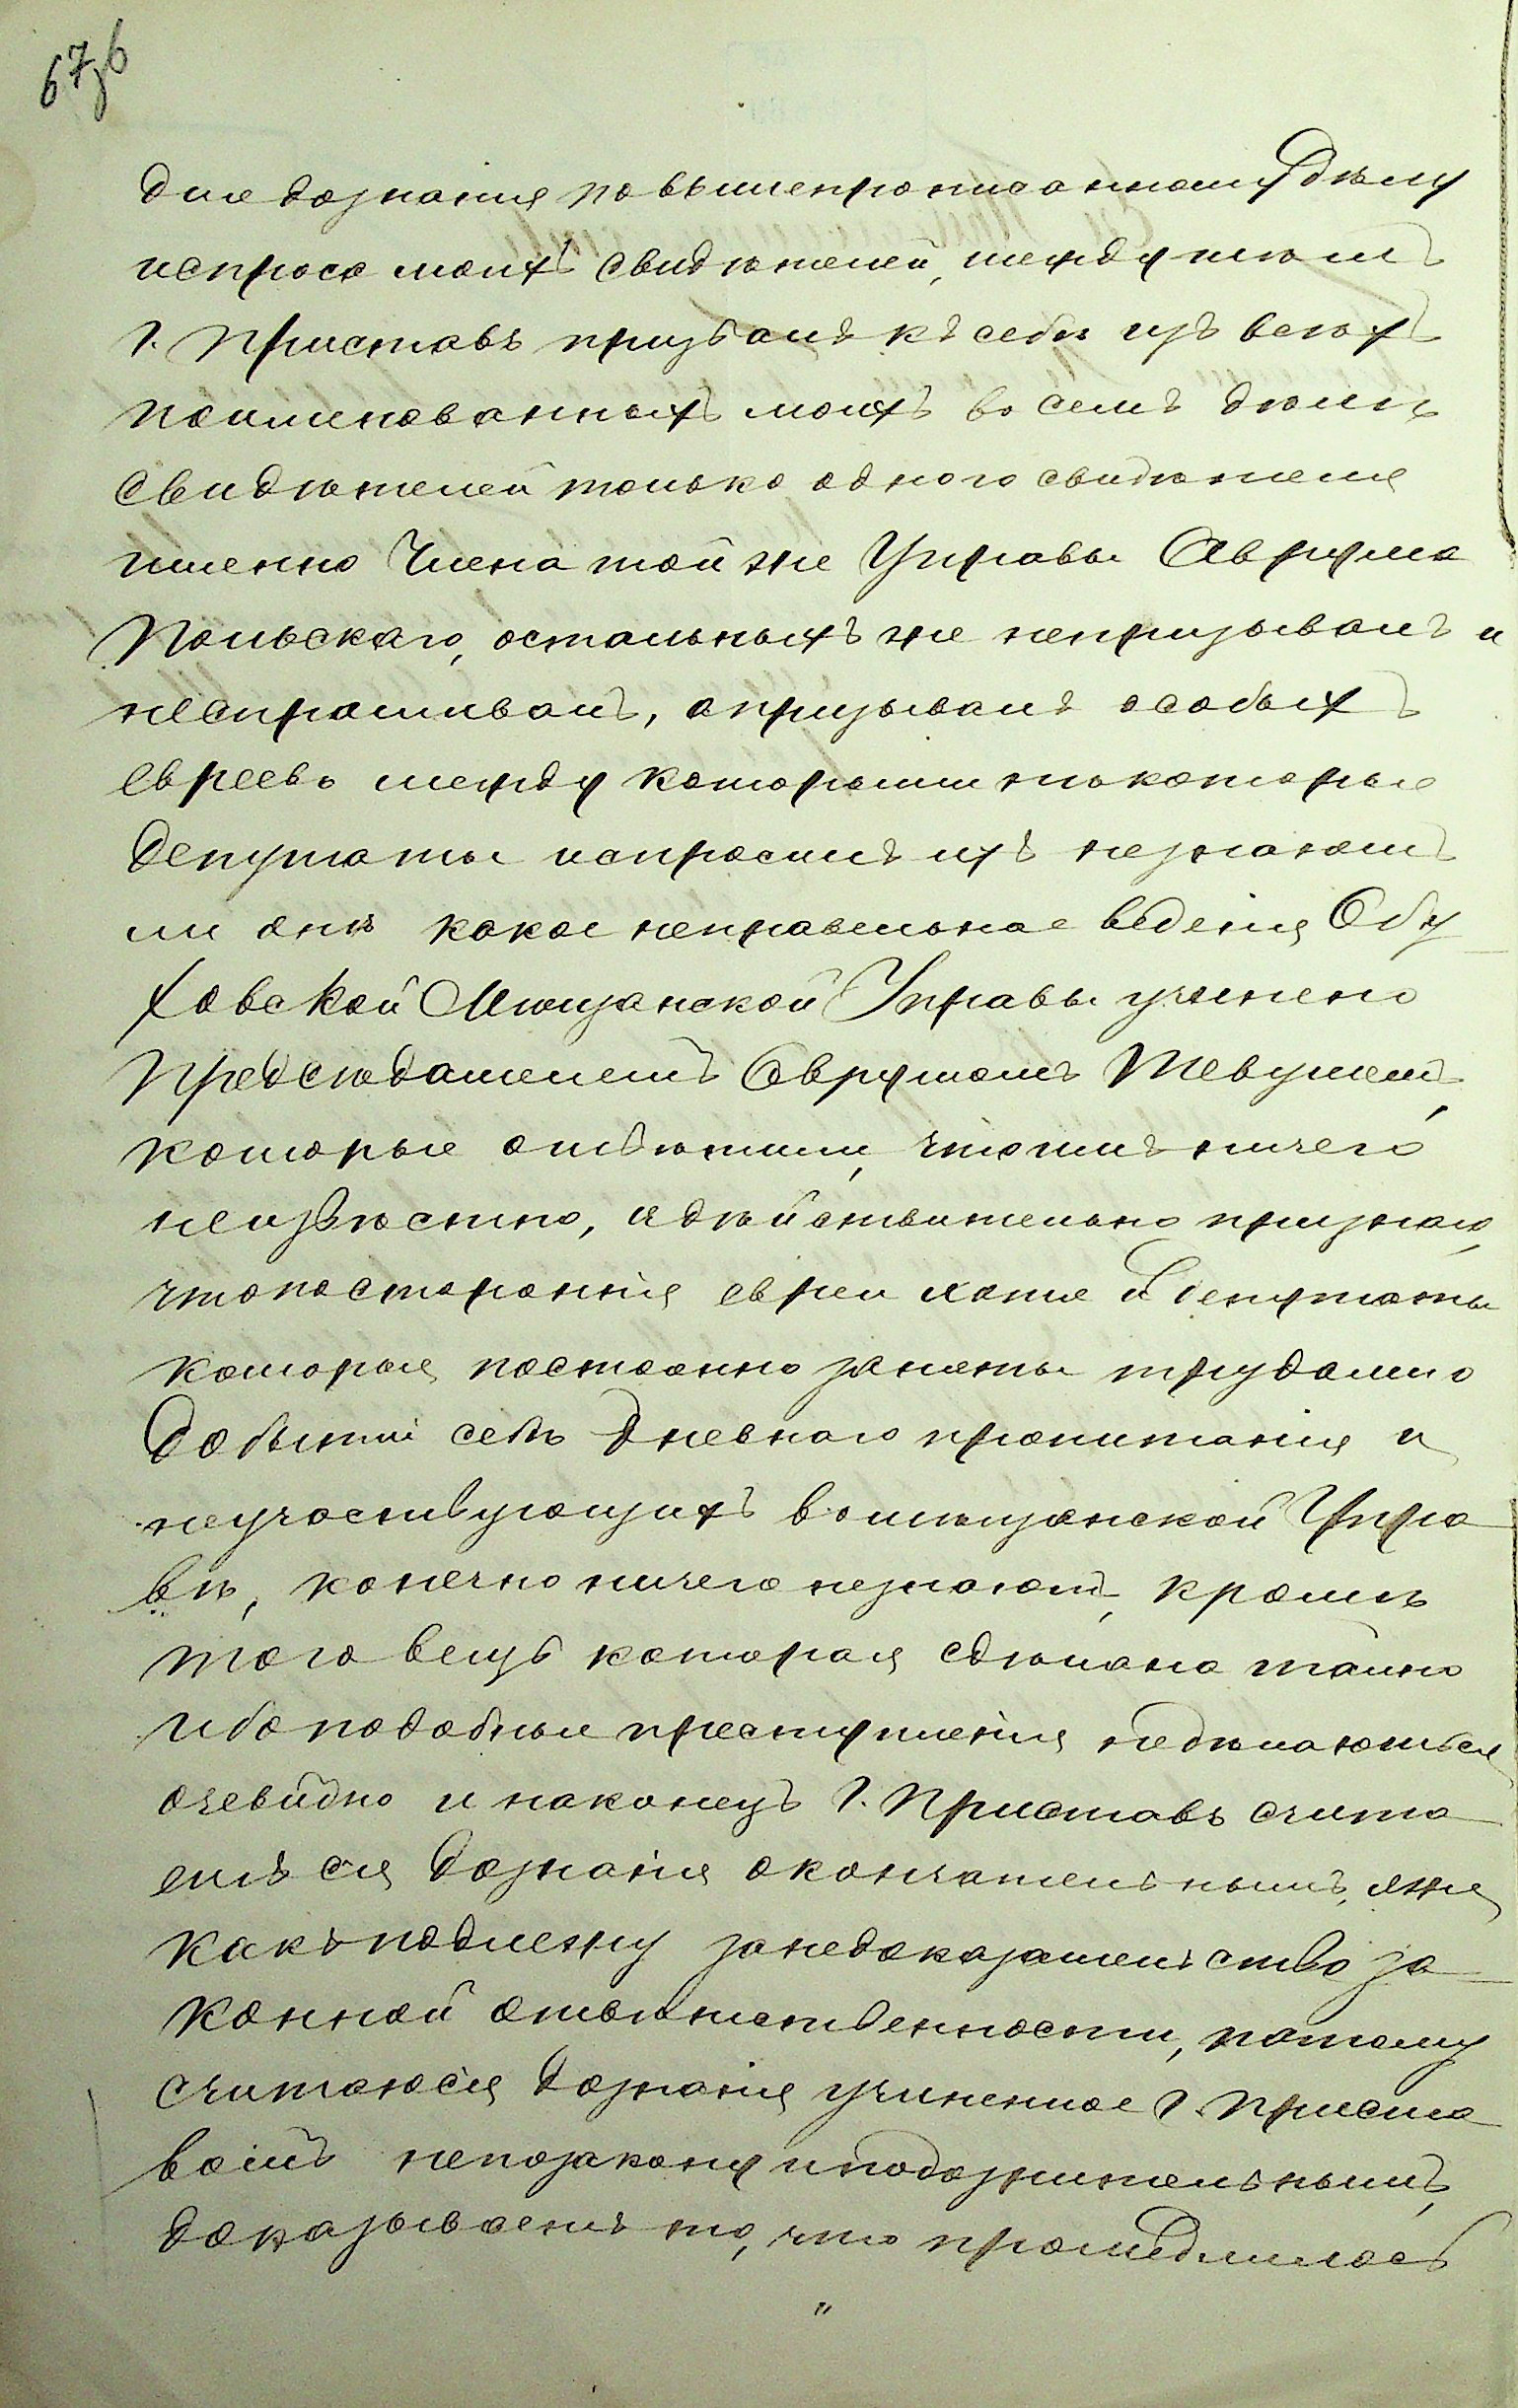 67об
для дознания по вышепрописанному дѣлу
испроса моихъ свидѣтелей, между тѣмъ
Г. Приставъ призвалъ къ себѣ изъ всѣхъ
поименованныхъ моихъ во семъ дѣлѣ
свидѣтелей только одного свидѣтеля
именно Члена той же Управы Аврума
Польскаго, остальныхъ же непризывалъ и
неспрашивалъ, а призывалъ особыхъ
евреевъ между которыми нѣкоторые
депутаты испросилъ ихъ незнаютъ
ли онѣ какое неправельное веденія Обу
ховской Мѣщанской Управы учинено
Предсѣдателемъ Аврумомъ Тевулемъ,
которые отвѣтили, что имъ ничего
неизвѣстно, и дѣйствительно признаю,
что посторонния евреи хотя и депутаты
которыя постоянно заняты трудами о
добытіи себѣ дневнаго пропитания и
неучаствующихъ во мѣщанской Упра
вѣ, конечно ничего незнаютъ, кромѣ
того вещь которая сдѣлана тайно
ибо подобные преступления недѣлаються
очевидно и наконецъ Г. Приставъ счита
етъ ся дознания окончательнымъ, яже
какъ подлежу занедоказательство за
конной отвѣтственности, потому
считаю ся дознания учиненное Г. Приста
вомъ непозакону и подозрительнымъ,
доказываетъ то, что промедлилось